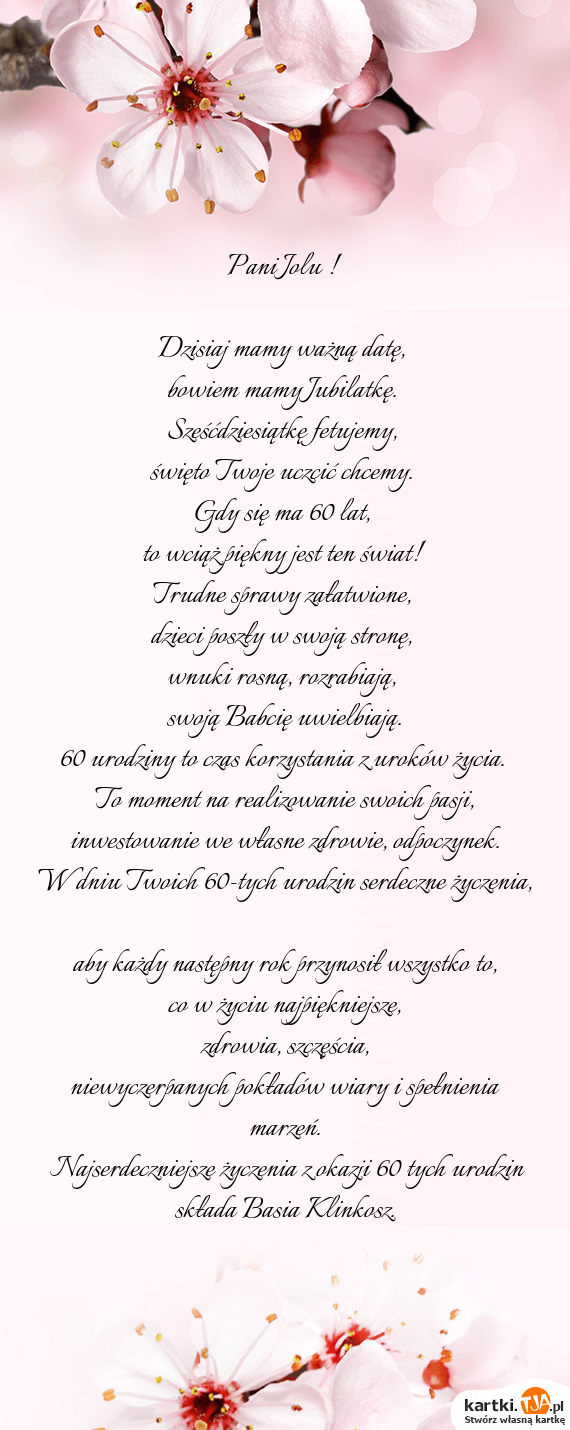 Pani Jolu !
Dzisiaj mamy ważną datę,
bowiem mamy Jubilatkę.
Sześćdziesiątkę fetujemy,
święto Twoje uczcić chcemy.
Gdy się ma 60 lat,
to wciąż piękny jest ten świat!
Trudne sprawy załatwione,
dzieci poszły w swoją stronę,
wnuki rosną, rozrabiają,
swoją Babcię uwielbiają.
60 urodziny to czas korzystania z uroków życia.
To moment na realizowanie swoich pasji,
inwestowanie we własne zdrowie, odpoczynek.
W dniu Twoich 60-tych urodzin serdeczne życzenia,
aby każdy następny rok przynosił wszystko to,
co w życiu najpiękniejsze,
zdrowia, szczęścia,
niewyczerpanych pokładów wiary i spełnienia
marzeń.
Najserdeczniejsze życzenia z okazji 60 tych urodzin
składa Basia Klinkosz.
kartki.TJA.pl
Stwórz własną kartkę